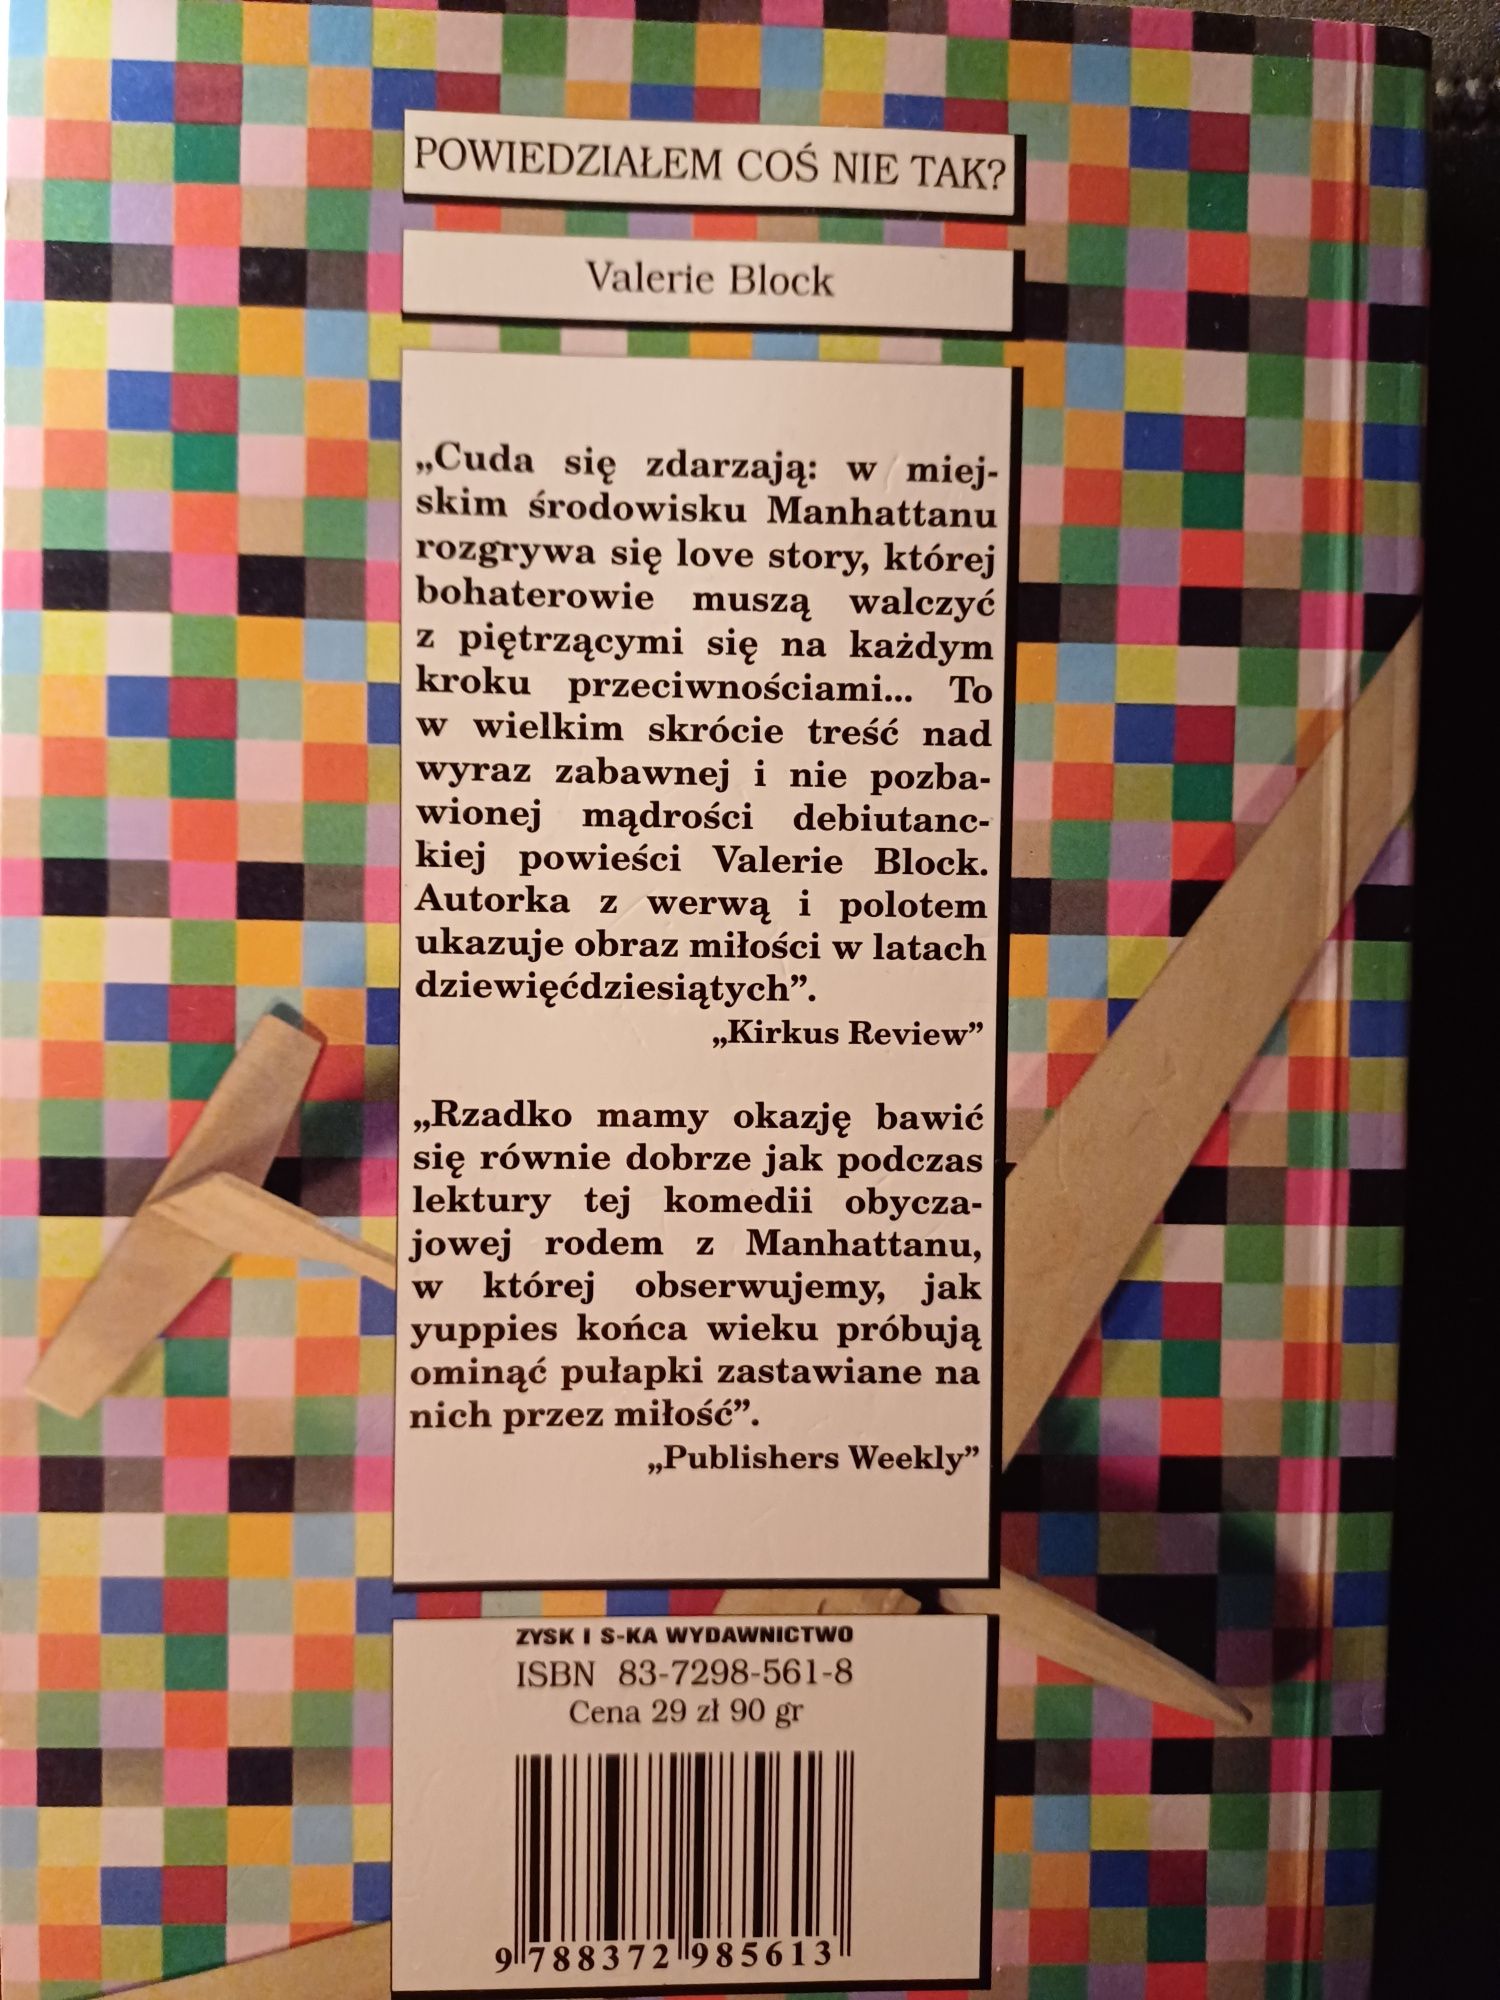 POWIEDZIAŁEM COŚ NIE TAK?
Valerie Block
„Cuda się zdarzają: w miej-
skim środowisku Manhattanu
rozgrywa się love story, której
bohaterowie muszą walczyć
z piętrzącymi się na każdym
kroku przeciwnościami... To
w wielkim skrócie treść nad
wyraz zabawnej i nie pozba-
wionej mądrości debiutanc-
kiej powieści Valerie Block.
Autorka z werwą i polotem
ukazuje obraz miłości w latach
dziewięćdziesiątych”.
„Kirkus Review”
„Rzadko mamy okazję bawić
się równie dobrze jak podczas
lektury tej komedii obycza-
jowej rodem z Manhattanu,
w której obserwujemy, jak
yuppies końca wieku próbują
ominąć pułapki zastawiane na
nich przez miłość”.
„Publishers Weekly”
ZYSK I S-KA WYDAWNICTWO
ISBN 83-7298-561-8
Cena 29 zł 90 gr
9 788372 985613